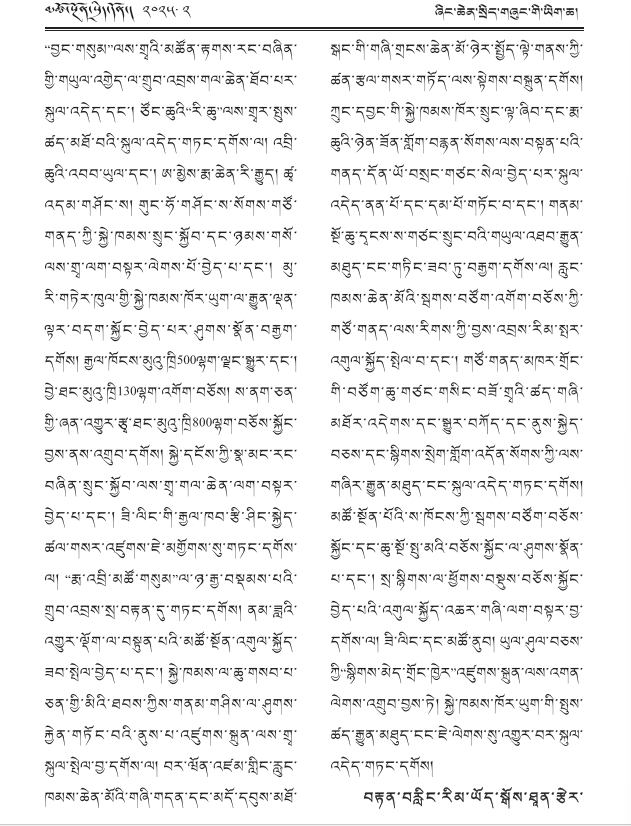 ༢༠༢༥.༢
ཞིང་ཆེན་སྲིད་གཞུང་གི་ཡིག་ཆ།
“བྱང་གསུམ”ལས་གྲྭའི་མཚོན་རྟགས་རང་བཞིན་
གྱི་གཡུལ་འགྱེད་ལ་གྲུབ་འབྲས་གལ་ཆེན་ཐོབ་པར་
སྐུལ་འདེད་དང་། ཙོང་ཆུའི“རི་ཆུ”ལས་གྲྭར་སྤུས་
ཚད་མཐོ་བའི་སྐུལ་འདེད་གཏང་དགོས་ལ། འབྲི་
ཆུའི་འབབ་ཡུལ་དང་། ཨ་མྱེས་རྨ་ཆེན་རི་རྒྱུད། ཚྭ་
འདམ་གཤོང་ས། གུང་ཧོ་གཤོང་ས་སོགས་གཙོ་
གནད་ཀྱི་སྐྱེ་ཁམས་སྲུང་སྐྱོབ་དང་ཉམས་གསོ་
ལས་གྲྭ་ལག་བསྟར་ལེགས་པོ་བྱེད་པ་དང་། མུ་
རི་གཏེར་ཁུལ་གྱི་སྐྱེ་ཁམས་ཁོར་ཡུག་ལ་རྒྱུན་ལྡན་
ལྟར་བདག་སྐྱོང་བྱེད་པར་ཤུགས་སྣོན་བརྒྱག་
དགོས། རྒྱལ་ཁོངས་མུའུ་ཁྲི500ལྷག་ལྗང་སྒྱུར་དང་།
བྱེ་ཐང་མུའུ་ཁྲི130ལྷག་འགོག་བཅོས། ས་ནག་ཅན་
གྱི་ཞན་འགྱུར་རྩྭ་ཐང་མུའུ་ཁྲི800ལྷག་བཅོས་སྐྱོང་
བྱས་ནས་འགྲུབ་དགོས། སྐྱེ་དངོས་ཀྱི་སྣ་མང་རང་
བཞིན་སྲུང་སྐྱོབ་ལས་གྲྭ་གལ་ཆེན་ལག་བསྟར་
བྱེད་པ་དང་། ཟི་ལིང་གི་རྒྱལ་ཁབ་རྩི་ཤིང་སྐྱེད་
ཚལ་གསར་འཛུགས་ཇེ་མགྱོགས་སུ་གཏང་དགོས་
ལ། “རྨ་འབྲི་མཚོ་གསུམ”ལ་ཉ་རྒྱ་བསྡམས་པའི་
གྲུབ་འབྲས་སྲ་བརྟན་དུ་གཏང་དགོས། ནམ་ཟླའི་
འགྱུར་ལྡོག་ལ་བསྟུན་པའི་མཚོ་སྔོན་འགུལ་སྐྱོད་
ཟབ་སྤེལ་བྱེད་པ་དང་། སྐྱེ་ཁམས་ལ་ཆུ་གསབ་པ་
ཅན་གྱི་མིའི་ཐབས་ཀྱིས་གནམ་གཤིས་ལ་ཤུགས་
རྐྱེན་གཏོང་བའི་ནུས་པ་འཛུགས་སྐྲུན་ལས་གྲྭ་
སྐུལ་སྤེལ་བྱ་དགོས་ལ། བར་ཕྲོན་འཛམ་གླིང་རླུང་
ཁམས་ཆེན་མོའི་གཞི་གདན་དང་མདོ་དབུས་མཐོ་
སྒང་གི་གཞི་གྲངས་ཆེན་མོ་ཉེར་སྤྱོད་ལྟེ་གནས་ཀྱི་
ཚན་རྩལ་གསར་གཏོད་ལས་སྟེགས་བསྐྲུན་དགོས།
ཀྲུང་དབྱང་གི་སྐྱེ་ཁམས་ཁོར་སྲུང་ལྟ་ཞིབ་དང་རྨ་
ཆུའི་ཉེན་ཟོན་གློག་བརྙན་སོགས་ལས་བསྟན་པའི་
གནད་དོན་ཡོ་བསྲང་གཙང་སེལ་བྱེད་པར་སྐུལ་
འདེད་ནན་པོ་དང་དམ་པོ་གཏོང་བ་དང་། གནམ་
སྔོ་ཆུ་དྭངས་ས་གཙང་སྲུང་བའི་གཡུལ་འཐབ་རྒྱུན་
མཐུད་ངང་གཏིང་ཟབ་ཏུ་བརྒྱག་དགོས་ལ། རླུང་
ཁམས་ཆེན་མོའི་སྦགས་བཙོག་འགོག་བཅོས་ཀྱི་
གཙོ་གནད་ལས་རིགས་ཀྱི་བྱས་འབྲས་རིམ་སྤར་
འགུལ་སྐྱོད་སྤེལ་བ་དང་། གཙོ་གནད་མཁར་གྲོང་
གི་བཙོག་ཆུ་གཙང་གསིང་བཟོ་གྲྭའི་ཚད་གཞི་
མཐོར་འདེགས་དང་སྒྱུར་བཀོད་དང་ནུས་སྐྱེད་
བཅས་དང་སྙིགས་སྲེག་གློག་འདོན་སོགས་ཀྱི་ལས་
གཞིར་རྒྱུན་མཐུད་ངང་སྐུལ་འདེད་གཏང་དགོས།
མཚོ་སྔོན་པོའི་ས་ཁོངས་ཀྱི་སྦགས་བཙོག་བཅོས་
སྐྱོང་དང་ཆུ་སྔོ་སྤུ་མའི་བཅོས་སྐྱོང་ལ་ཤུགས་སྣོན་
པ་དང་། སྲ་སྙིགས་ལ་ཕྱོགས་བསྡུས་བཅོས་སྐྱོང་
བྱེད་པའི་འགུལ་སྐྱོད་འཆར་གཞི་ལག་བསྟར་བྱ་
དགོས་ལ། ཟི་ལིང་དང་མཚོ་ནུབ། ཡུལ་ཤུལ་བཅས་
ཀྱི“སྙིགས་མེད་གྲོང་ཁྱེར”འཛུགས་སྐྲུན་ལས་འགན་
ལེགས་འགྲུབ་བྱས་ཏེ། སྐྱེ་ཁམས་ཁོར་ཡུག་གི་སྤུས་
ཚད་རྒྱུན་མཐུད་ངང་ཇེ་ལེགས་སུ་འགྱུར་བར་སྐུལ་
འདེད་གཏང་དགོས།
བརྟན་བརླིང་རིམ་ཡོད་སྒོས་ཐུན་རྩེར་